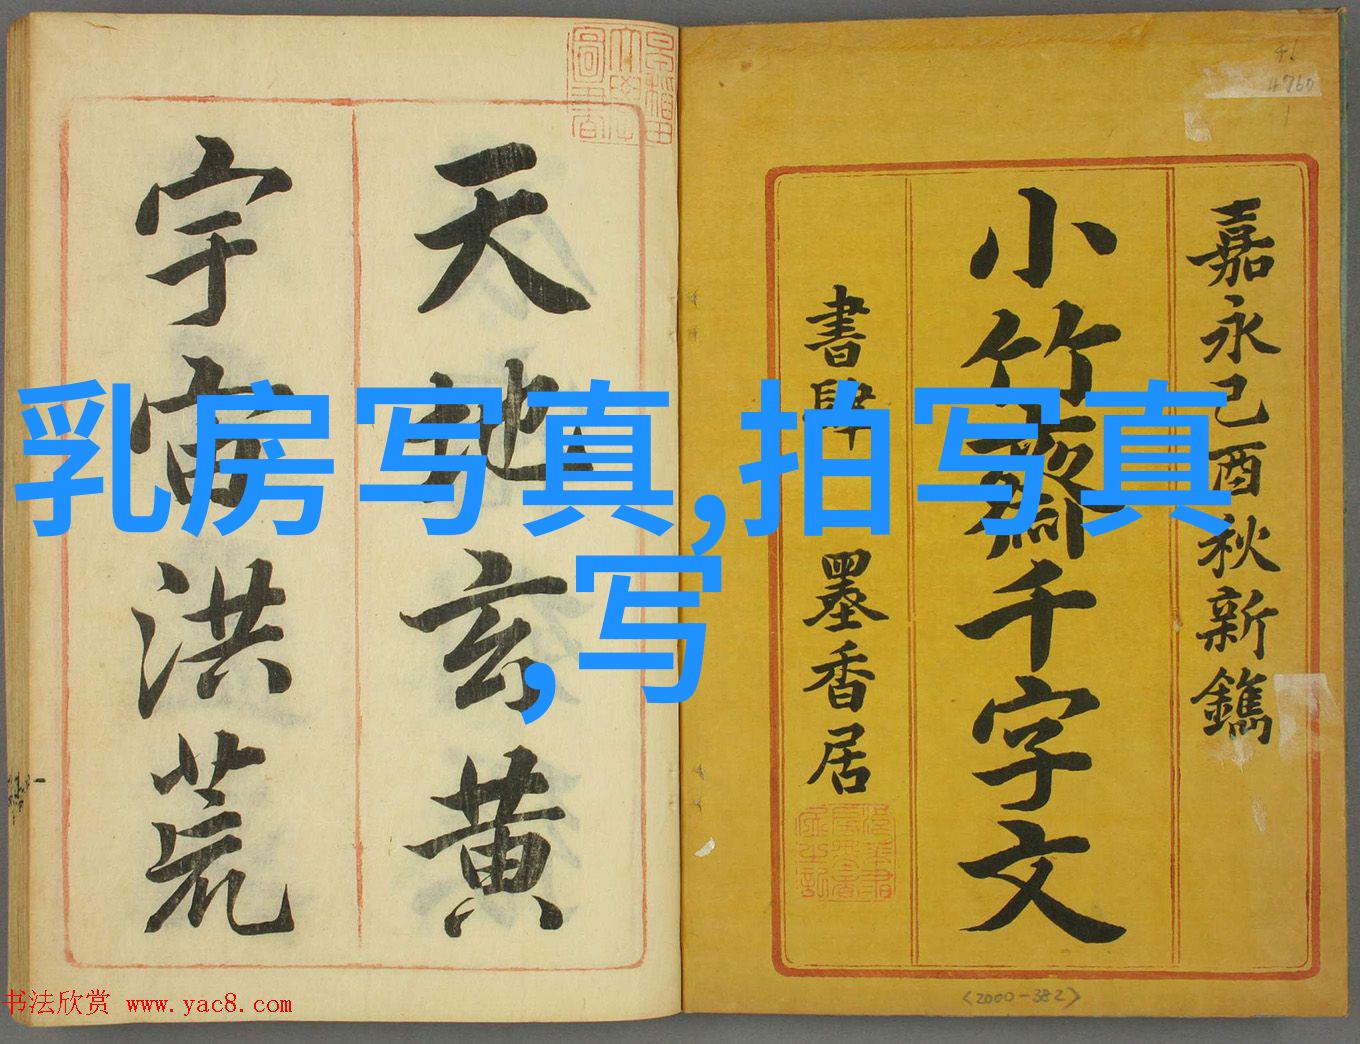 嘉永己酉秋新鐫
小竹齋千字文
書肆 墨香居
天地玄黄
宇宙洪荒
乳房写真,拍写真
,写
46
4760
<2000-382>
书法欣赏 www.yac8.com